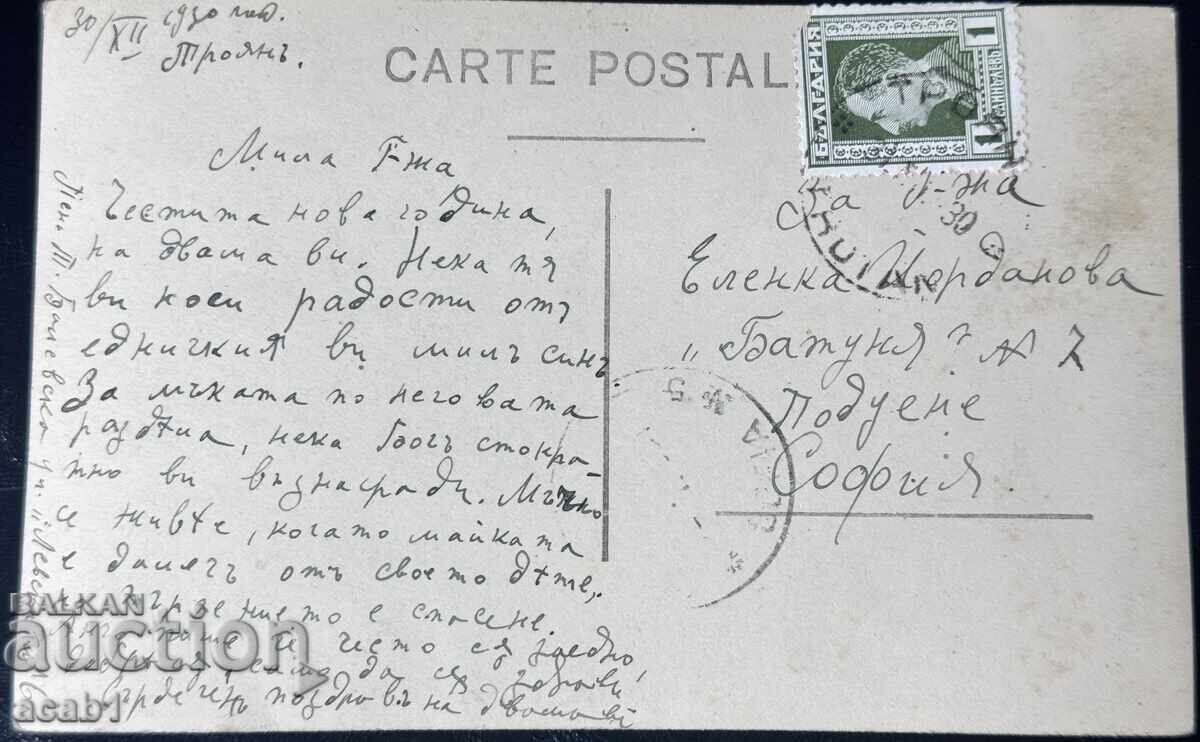 30/XII 1930 год.
Троянъ.
CARTE POSTALE
БЪЛГАРИЯ
1
1
ТРОЯН
30
Мила Г-жа
Честита нова година,
на двама ви. Нека тя
ви носи радости отъ
едничкия ви милъ синъ.
За мъката по неговата
раздѣла, нека Богъ стокра-
тно ви възнагради. Мъчно
се живѣе, когато майката
е далечъ отъ своето дѣте,
но търпението е спасение.
пише че често са заедно,
да са здрави
Сърдеченъ поздравъ на двамата ви
За Г-жа
Еленка Йорданова
„Батуня" № 7
Подуене
София.
SOFIA
BALKAN
auction
acab1